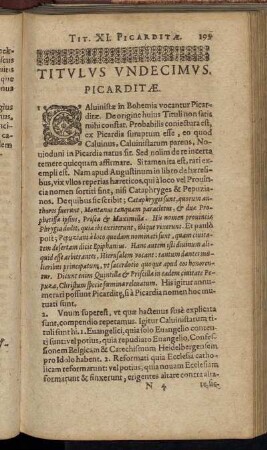 TIT. XI. PICARDITÆ.
TITVLVS VNDECIMVS.
PICARDITÆ.
1 CAluinistæ in Bohemia vocantur Picar-
ditæ. De origine huius Tituli non satis
mihi constat. Probabilis coniectura est,
ex Picardia sumptum esse, eo quod
Caluinus, Caluinistarum parens, No-
uioduni in Picardia natus sit. Sed nolim de re incerta
temere quicquam affirmare. Si tamen ita est, rati expli-
cati est. Nam apud Augustinum in libro de hæresi-
bus, vix vllos reperias hæreticos, qui à loco vel Prouin-
cia nomen sortiti sint, nisi Cataphryges & Pepuzia-
nos. De quibus sic scribit; Cataphryges sunt, quorum au-
thores fuerunt, Montanus tanquam paracletus, & duæ Pro-
phetissæ ipsius, Prisca & Maximilla. His nomen prouincia
Phrygia dedit, quia ibi extiterunt, ibique vixerunt. Et paulò
post; Pepuziani à loco quodam nominati sunt, quam ciuita-
tem desertam dicit Epiphanius. Hanc autem isti diuinum ali-
quid esse arbitrantes, Hierusalem vocant: tantum dantes mu-
lieribus principatum, vt sacerdotio quoque apud eos honoren-
tur. Dicunt enim Quintillæ & Priscillæ in eadem ciuitate Pe-
puza, Christum specie fœminæ reuelatum. His igitur annu-
merari possunt Picarditæ, si à Picardia nomen hoc mu-
tuati sunt.
2. Vnum superest, vt quæ hactenus fusè explicata
sunt, compendio repetamus. Igitur Caluinistarum ti-
tuli sunt hi. 1. Euangelici, quia solo Euangelio conten-
ti sunt: vel potius, quia repudiato Euangelio, Confes-
sionem Belgicam & Catechismum Heidelbergensem
pro Idolo habent. 2. Reformati quia Ecclesiā catholi-
cam reformarunt: vel potius, quia nouam Ecclesiam
formarunt & finxerunt, erigentes altare contra alta-
N 4